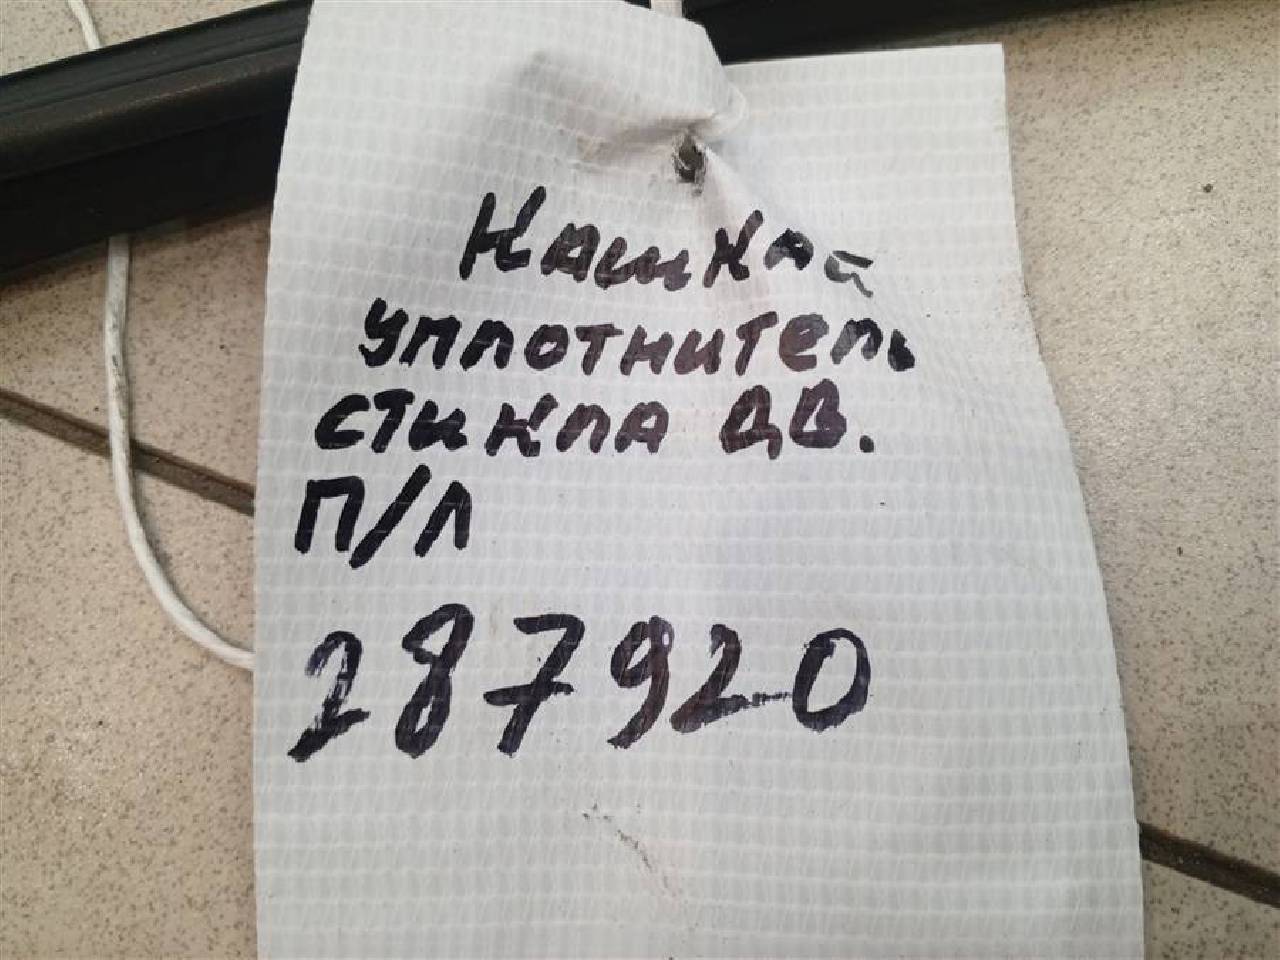 Кашкай
уплотнитель
стикла дв.
П/Л
287920